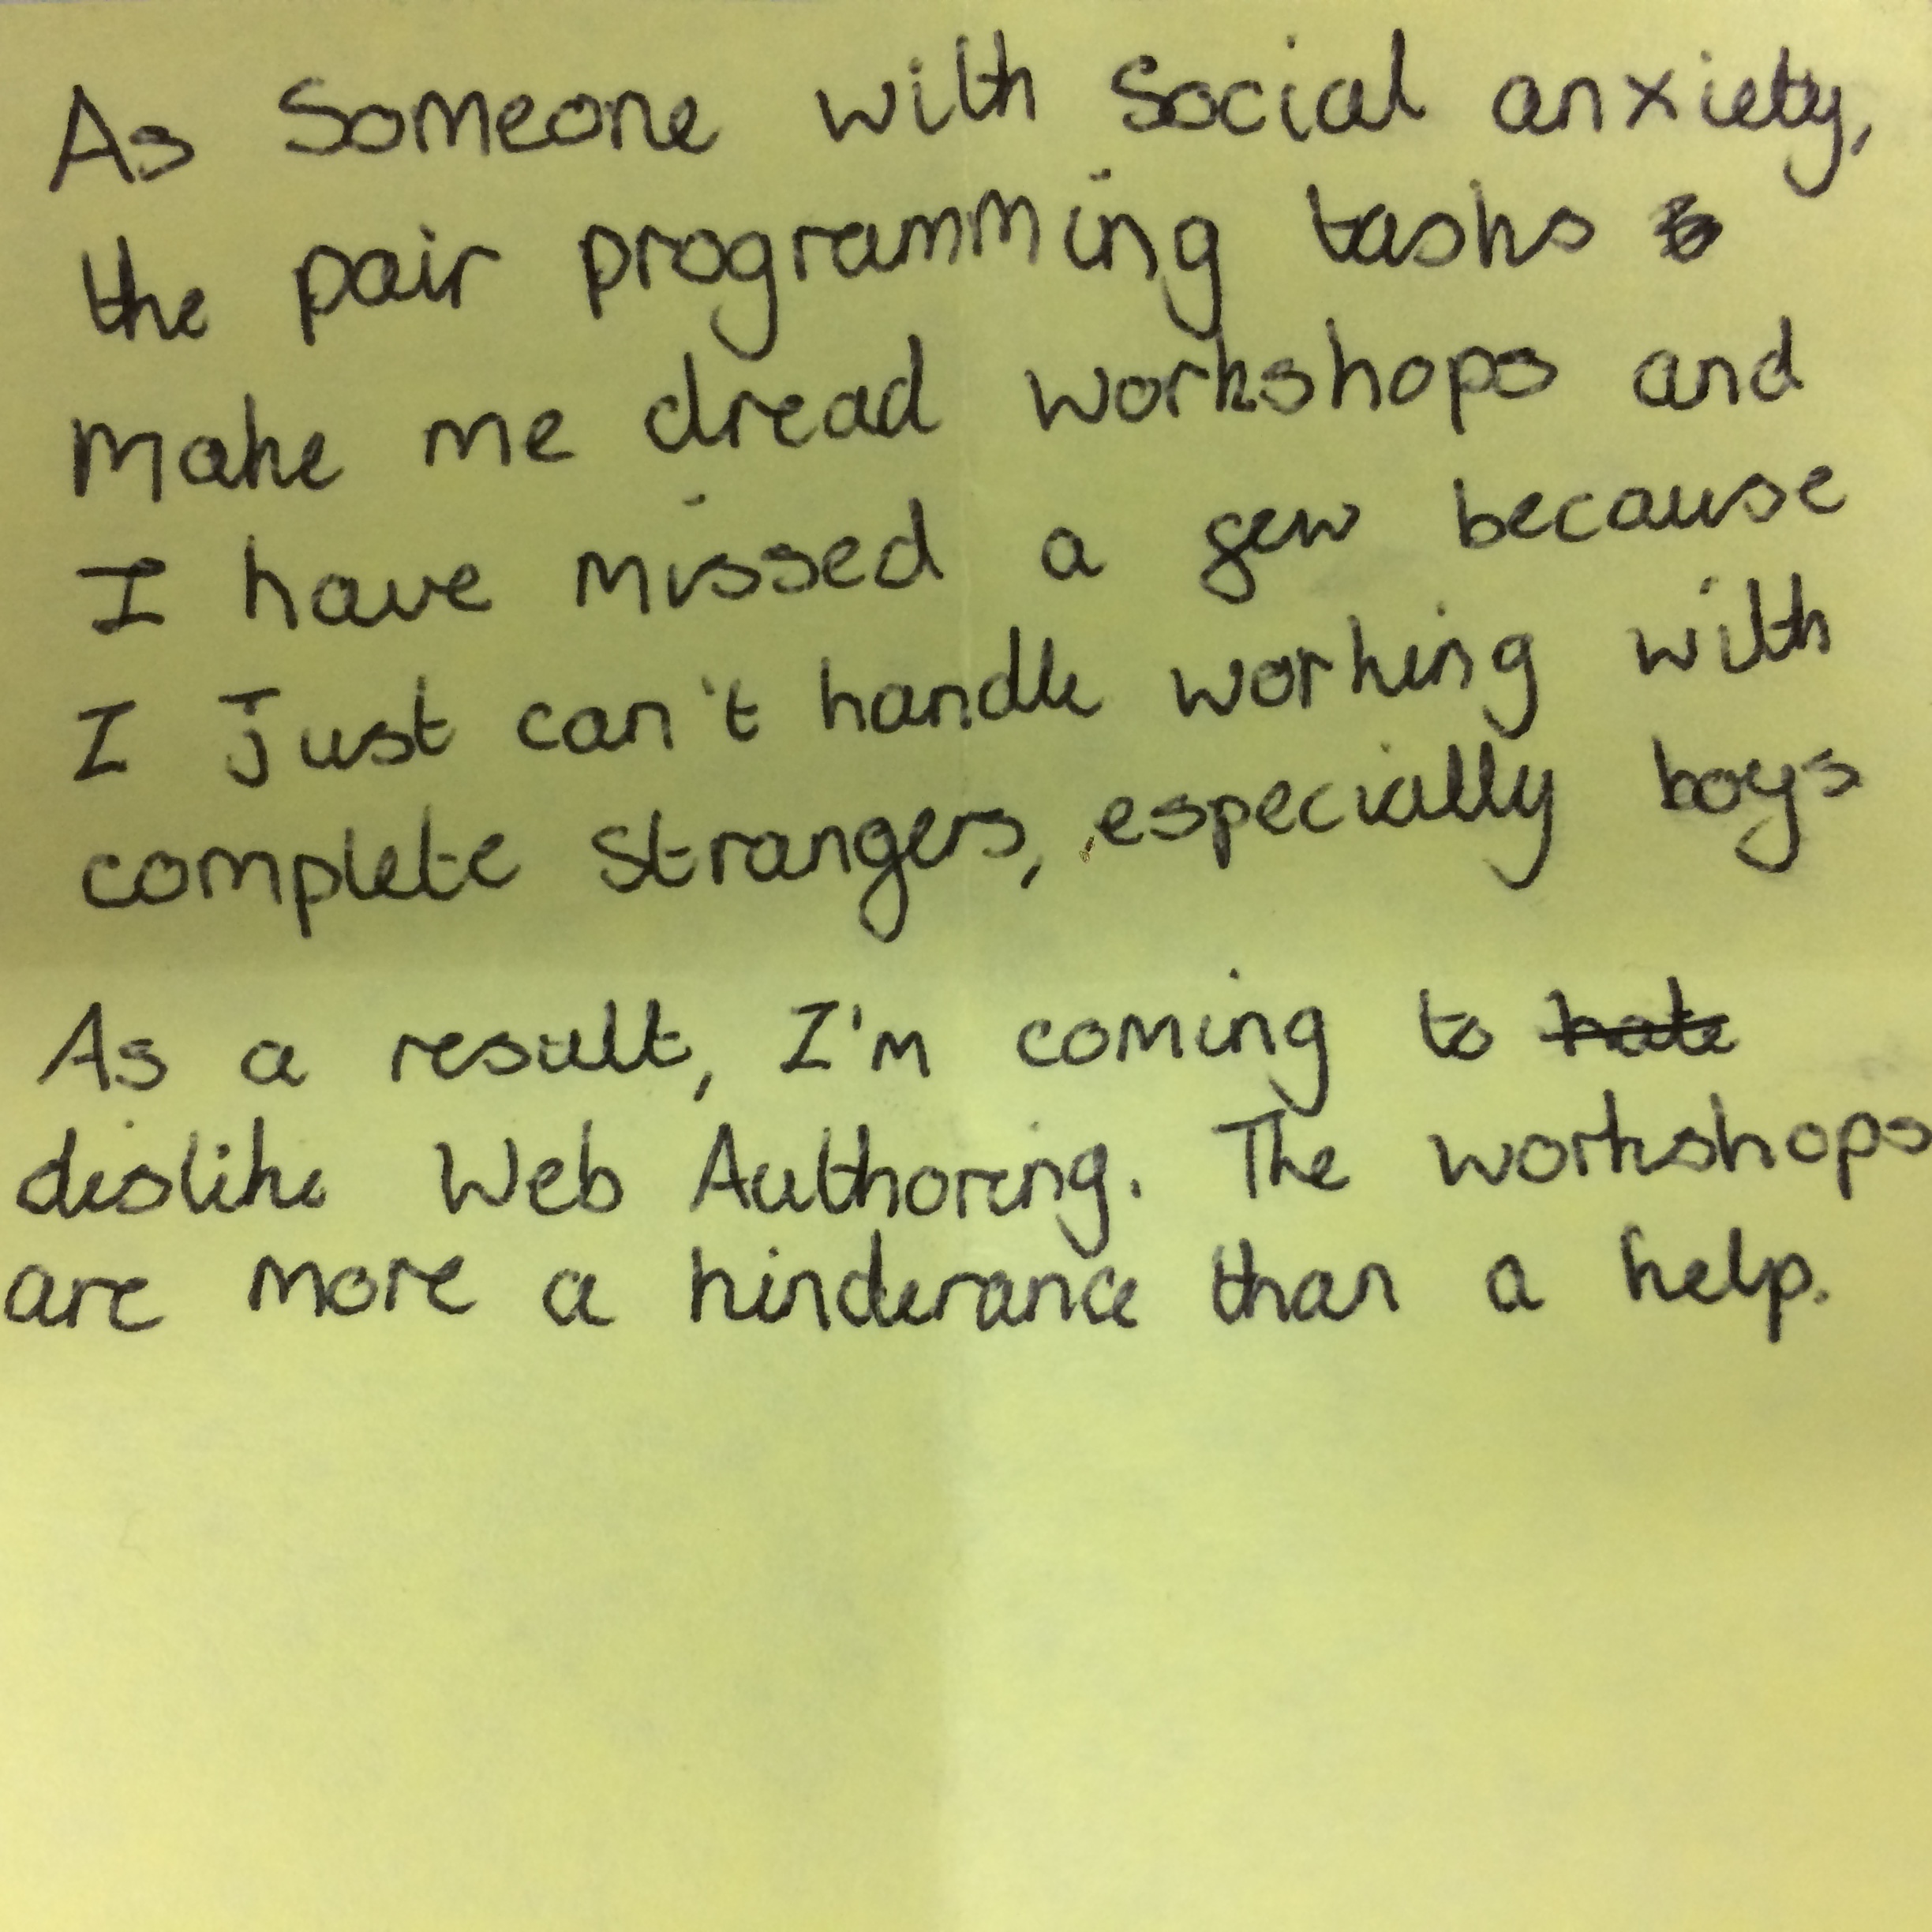 As Someone with Social anxiety,
the pair programming tasks
make me dread workshops and
I have missed a few because
I Just can't handle working with
complete strangers, especially boys
As a result, I'm coming to hate
dislike Web Authoring. The workshops
are more a hinderance than a help.